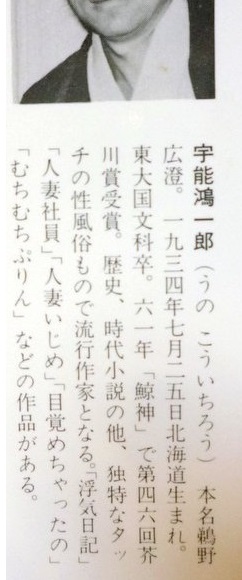 宇能鴻一郎（うの こういちろう） 本名鵜野
広澄。一九三四年七月二五日北海道生まれ。
東大国文科卒。六一年「鯨神」で第四六回芥
川賞受賞。歴史、時代小説の他、独特なタッ
チの性風俗もので流行作家となる。「浮気日記」
「人妻社員」「人妻いじめ」「目覚めちゃったの」
「むちむちぷりん」などの作品がある。